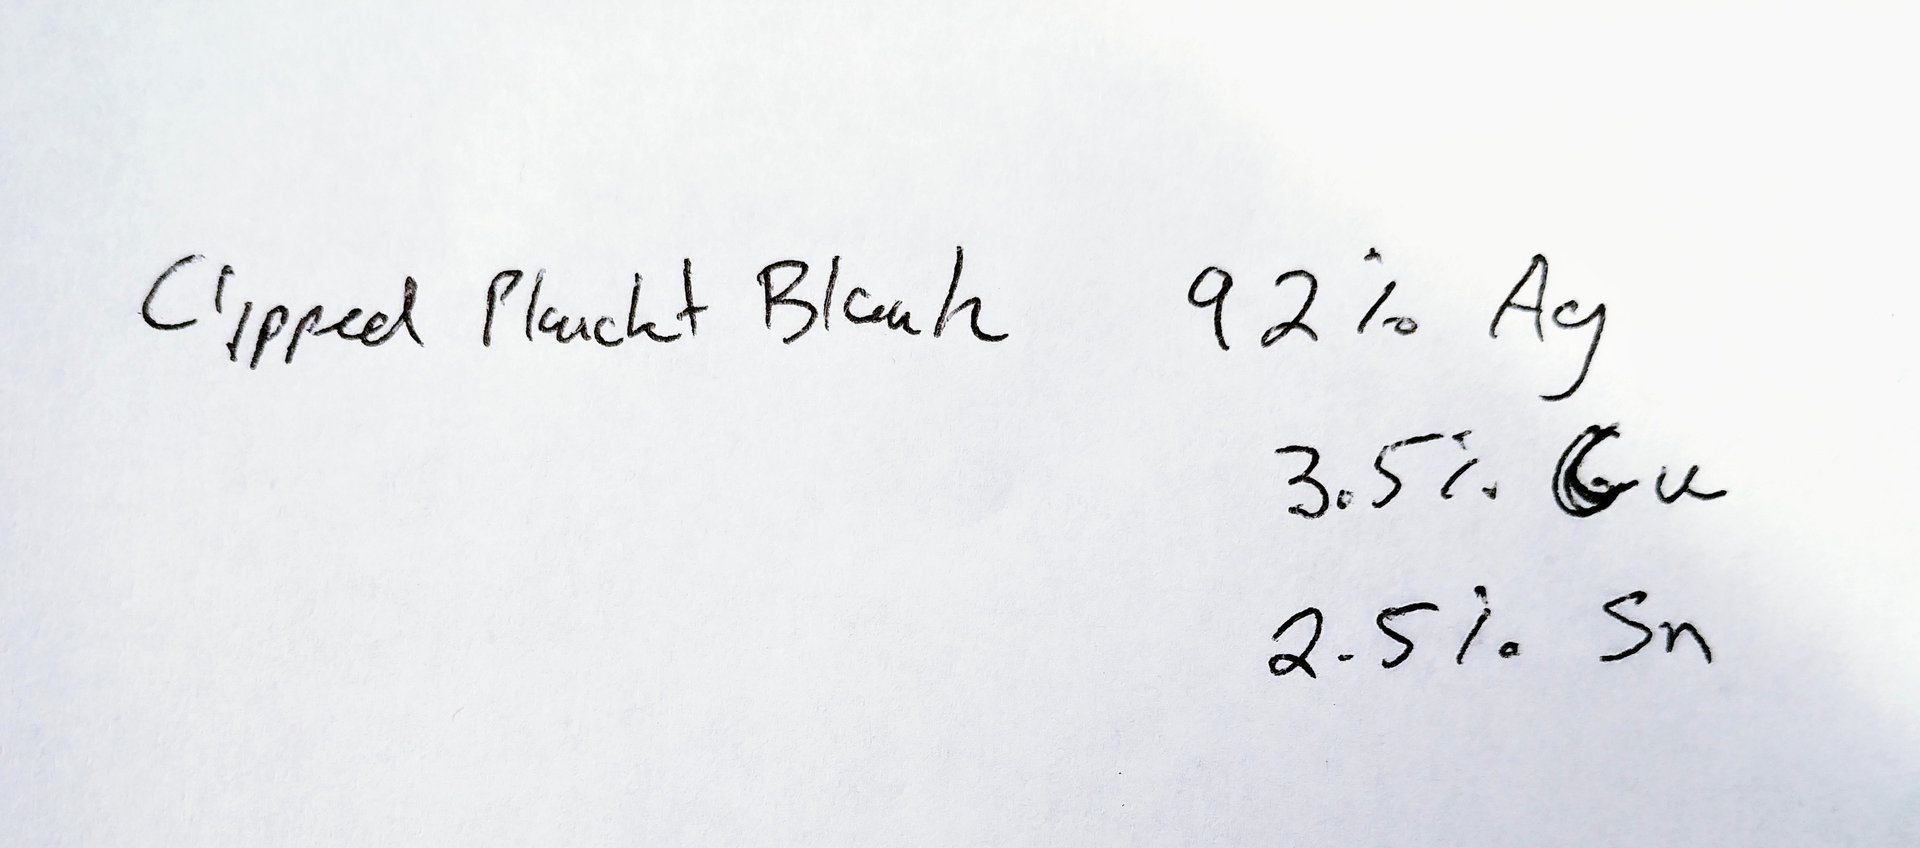 Clipped Planchet Blank 92% Ag
3.5% Cu
2.5% Sn